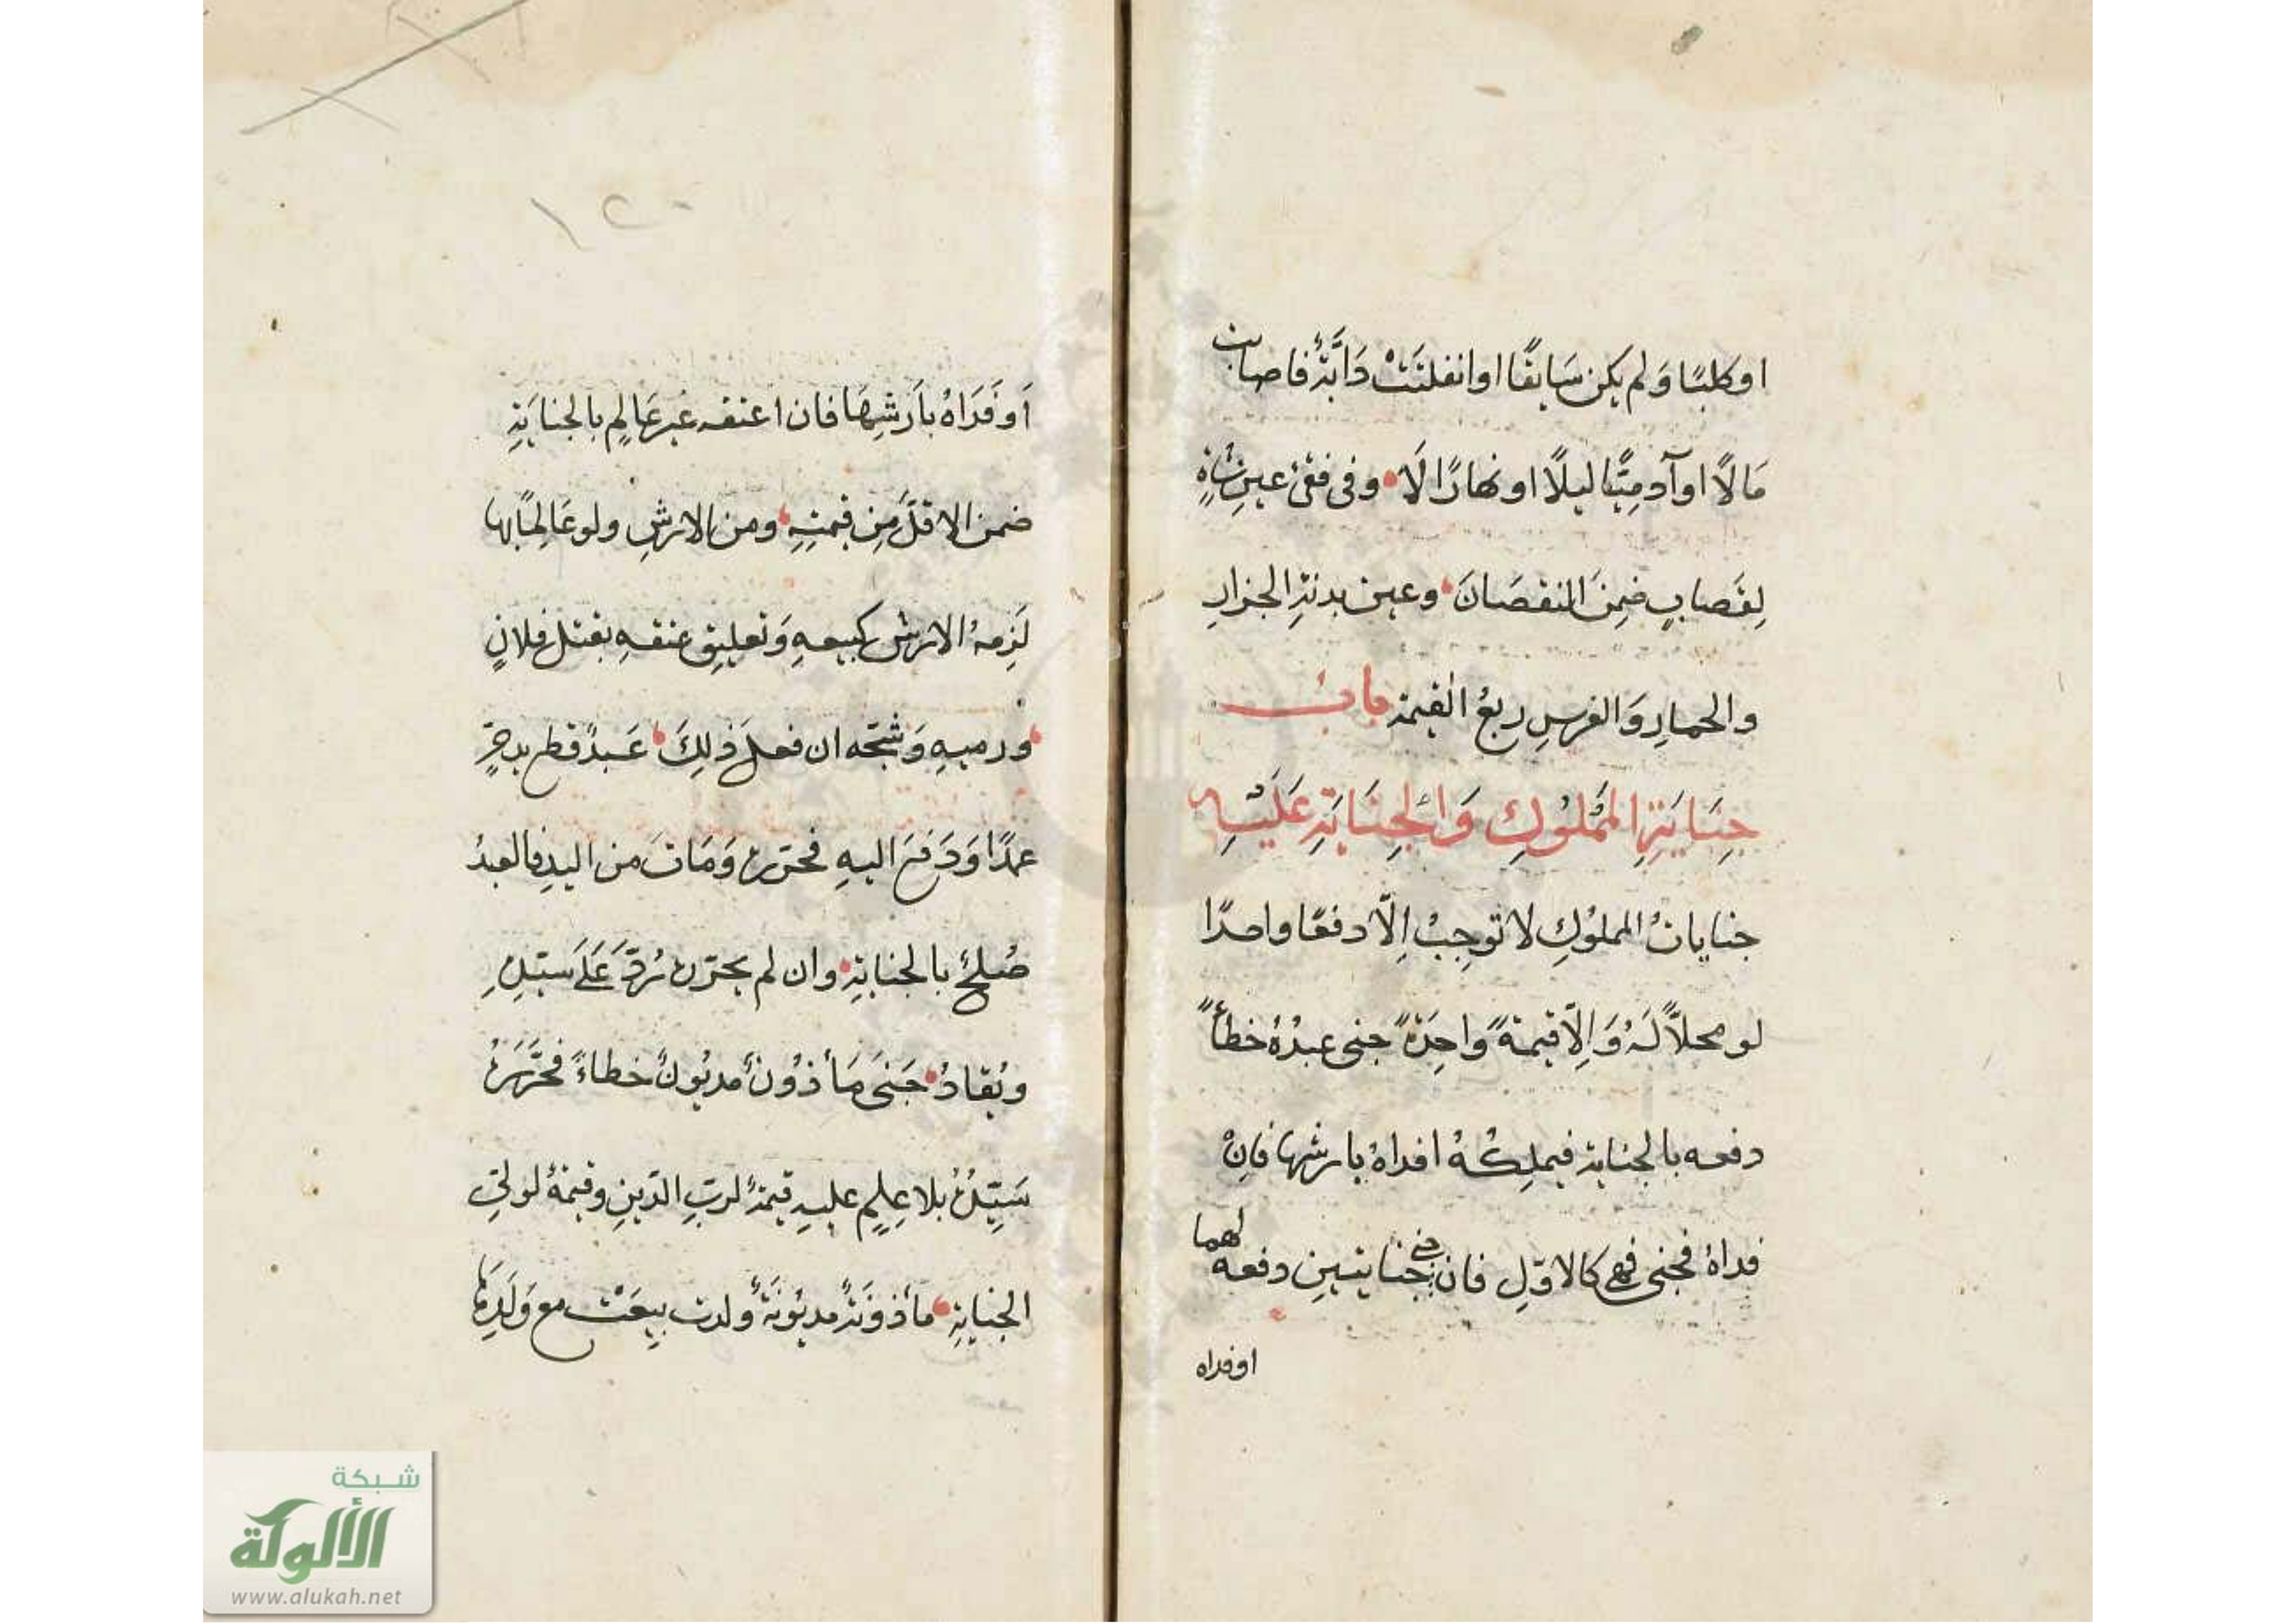 او كلبًا وَلم يكن سَايقًا او انفلتَتْ دَابَّةٌ فاصابت
مَالًا او آدمِيًّا ليلًا او نهارًا لَا وفى فقئ عينِ شاةٍ
لِقَصابٍ ضمِنَ النقصَانَ وعين بدنةِ الجزارِ
والحمارِ وَالفرسِ ربعُ القيمة بابُ
جِنَايَةِ المَمْلُوكِ وَالْجِنَايَةِ عَلَيْهِ
جناياتُ المملوُكِ لا توجِبُ اِلّا دفعًا واحدًا
لو محلاًّ لَهُ وَاِلّا قيمةً واحِدَةً جنى عبدُهُ خطأً
دفعه بالجناية فيملِكُهُ افداهُ بارشها فانْ
فداهُ فجنى فهى كالاوّلِ فان جنى جنايتينِ دفعه لهما
او فداه
١٢٠
اَو فَدَاهُ باَرشِهَا فان اعتقه غيرعَالِم بالجنايَةِ
ضمن الاقلَّ مِن قيمتِهِ ومن الارشِ ولو عَالِمًا بها
لَزِمهُ الارش كبيعهِ وَتعليقِ عتقهِ بقتل فلانٍ
ورميهِ وَشجّه ان فعل ذلِكَ عَبدٌ قطع يد حرٍّ
عمدًا وَدَفعَ اليهِ فحرّره وَمَاتَ من اليدِ فالعبدُ
صُلحٌ بالجنايةِ وان لم يحرّره رُدَّ عَلَى سيّدِهِ
ويُقادُ جَنَى مَأذُونٌ مديُونٌ خطاءً فحَرَّرَهُ
سَيِّدُهُ بلا عِلمٍ عليهِ قيمةٌ لربِّ الدّينِ وقيمةٌ لولىّ
الجنايةِ مأذونَةٌ مديُونَةٌ ولدت بيعَتْ مع وَلَدِهَا
شبكة
الألوكة
www.alukah.net